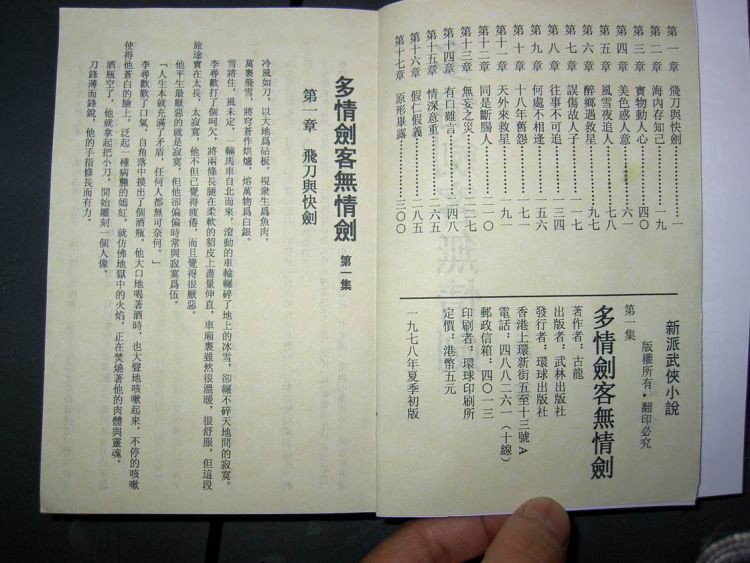 第一章 飛刀與快劍…………一
第二章 海內存知己…………一九
第三章 寶物動人心…………四〇
第四章 美色惑人意…………六一
第五章 風雪夜追蹤…………七八
第六章 醉鄉遇救星…………九七
第七章 誤傷故人子…………一一七
第八章 往事不可追…………一三四
第九章 何處不相逢…………一五六
第十章 十八年舊怨…………一七一
第十一章 天外來救星…………一九一
第十二章 同是斷腸人…………二一〇
第十三章 無妄之災…………二二七
第十四章 有口難言…………二四八
第十五章 情深意重…………二六五
第十六章 假仁假義…………二八五
第十七章 原形畢露…………三〇〇
新派武俠小說
版權所有・翻印必究
多情劍客無情劍
第一集
著作者：古龍
出版者：武林出版社
發行者：環球出版社
香港上環新街五至十三號A
電話：四八八二六一（十線）
郵政信箱：四〇一三
印刷者：環球印刷所
定價：港幣五元
一九七八年夏季初版
多情劍客無情劍 第一集
第一章 飛刀與快劍
冷風如刀，以大地爲砧板，視衆生爲魚肉。
萬裏飛雪，將穹蒼作烘爐，熔萬物爲白銀。
雪將住，風未定，一輛馬車自北而來，滾動的車輪輾碎了地上的冰雪，卻輾不碎天地間的寂寞。
李尋歡打了個呵欠，將兩條長腿在柔軟的貂皮上盡量伸直，車廂裏雖然很溫暖，很舒服，但這段
旅途實在太長，太寂寞，他不但已覺得疲倦，而且覺得很厭惡。
他平生最厭惡的就是寂寞，但他卻偏偏時常與寂寞爲伍。
「人生本就充滿了矛盾，任何人都無可奈何。」
李尋歡歎了口氣，自角落中摸出了個酒瓶，他大口地喝著酒時，也大聲地咳嗽起來，不停的咳嗽
使得他蒼白的臉上，泛起一種病態的嫣紅，就仿佛地獄中的火焰，正在焚燒著他的肉體與靈魂。
酒瓶空了，他就拿起把小刀，開始雕刻一個人像。
刀鋒薄而鋒銳，他的手指修長而有力。